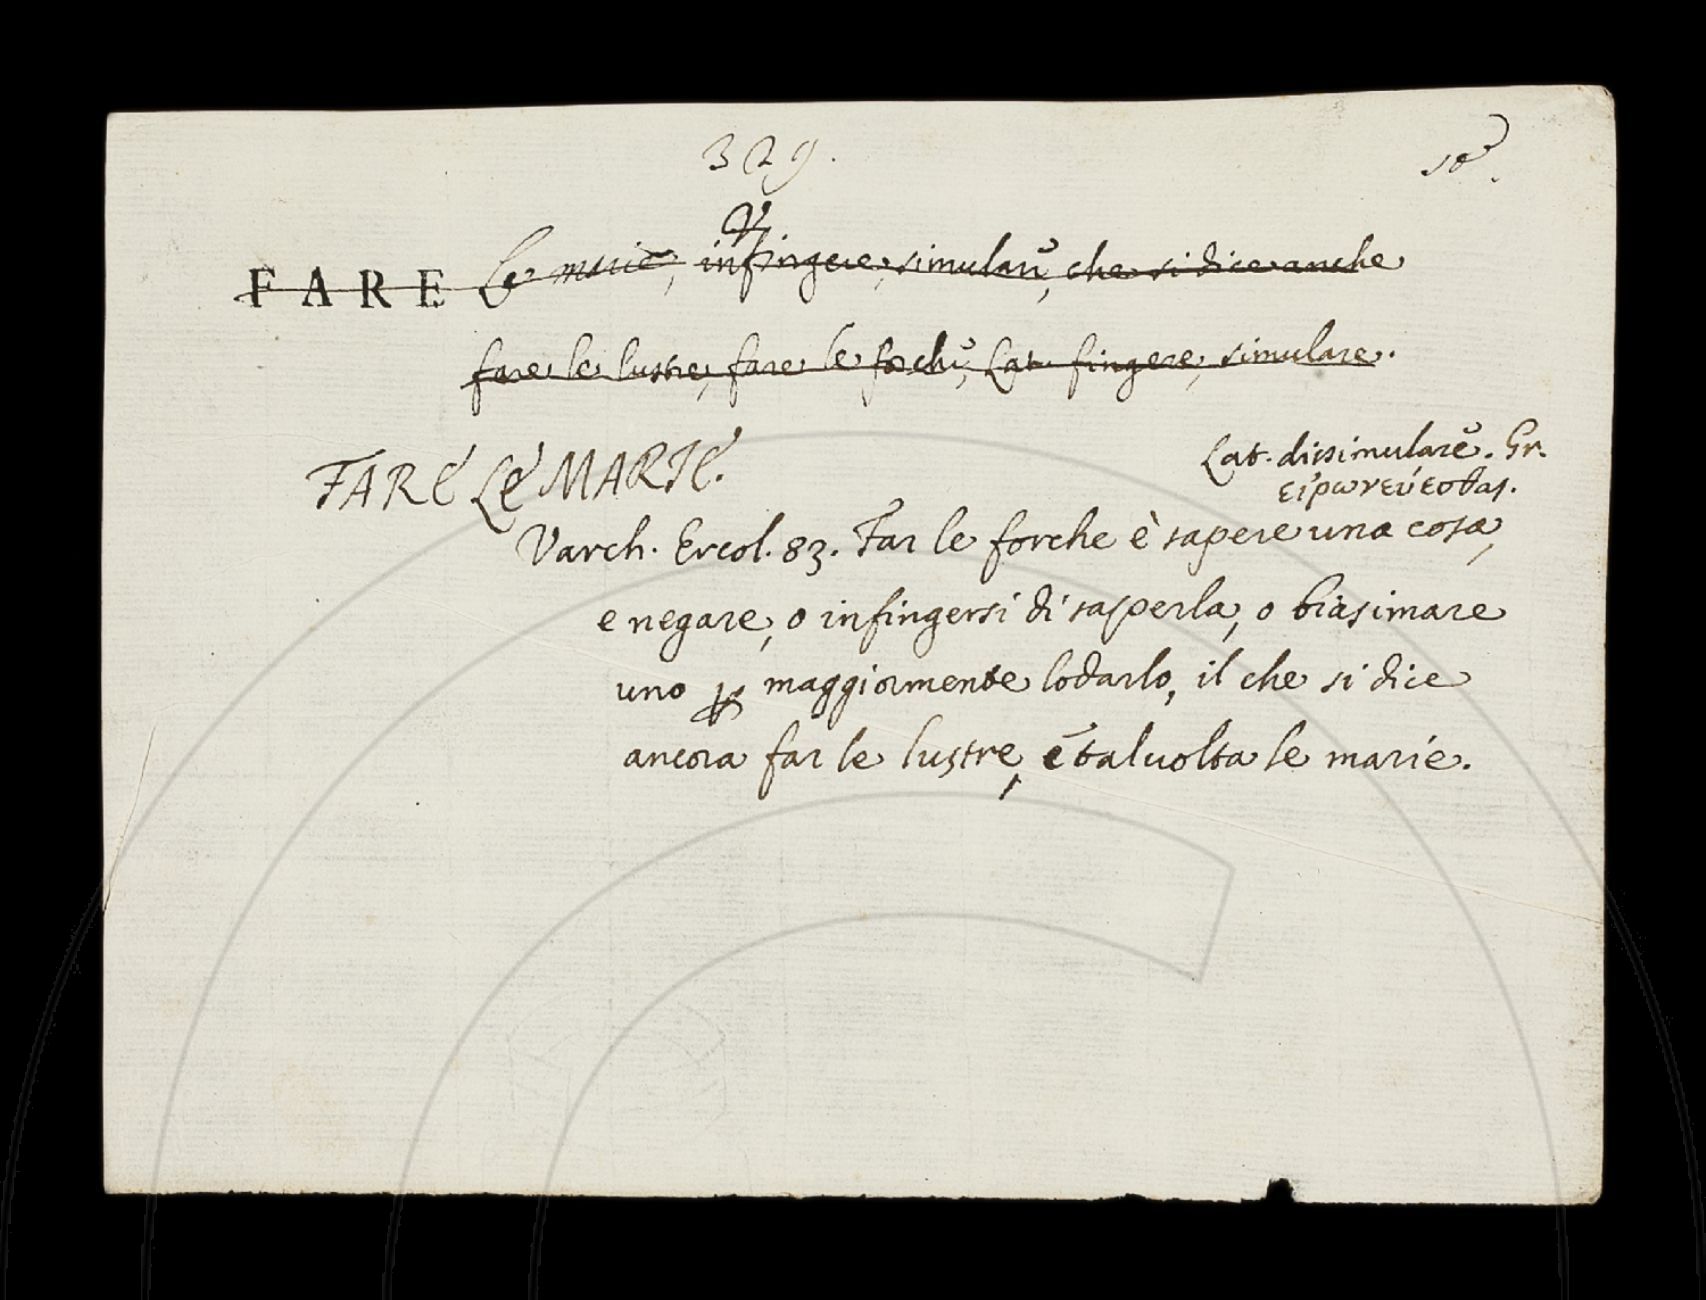 329.
FARE le marie, infingere, simulare, che si dice anche
fare le lustre, fare le forche, Lat. fingere, simulare.
FARE LE MARIE. Lat. dissimulare. Gr.
εἰρωνεύεσθαι.
Varch. Ercol. 83. Far le forche è sapere una cosa,
e negare, o infingersi di saperla, o biasimare
uno ꝑ maggiormente lodarlo, il che si dice
ancora far le lustre, e talvolta le marie.